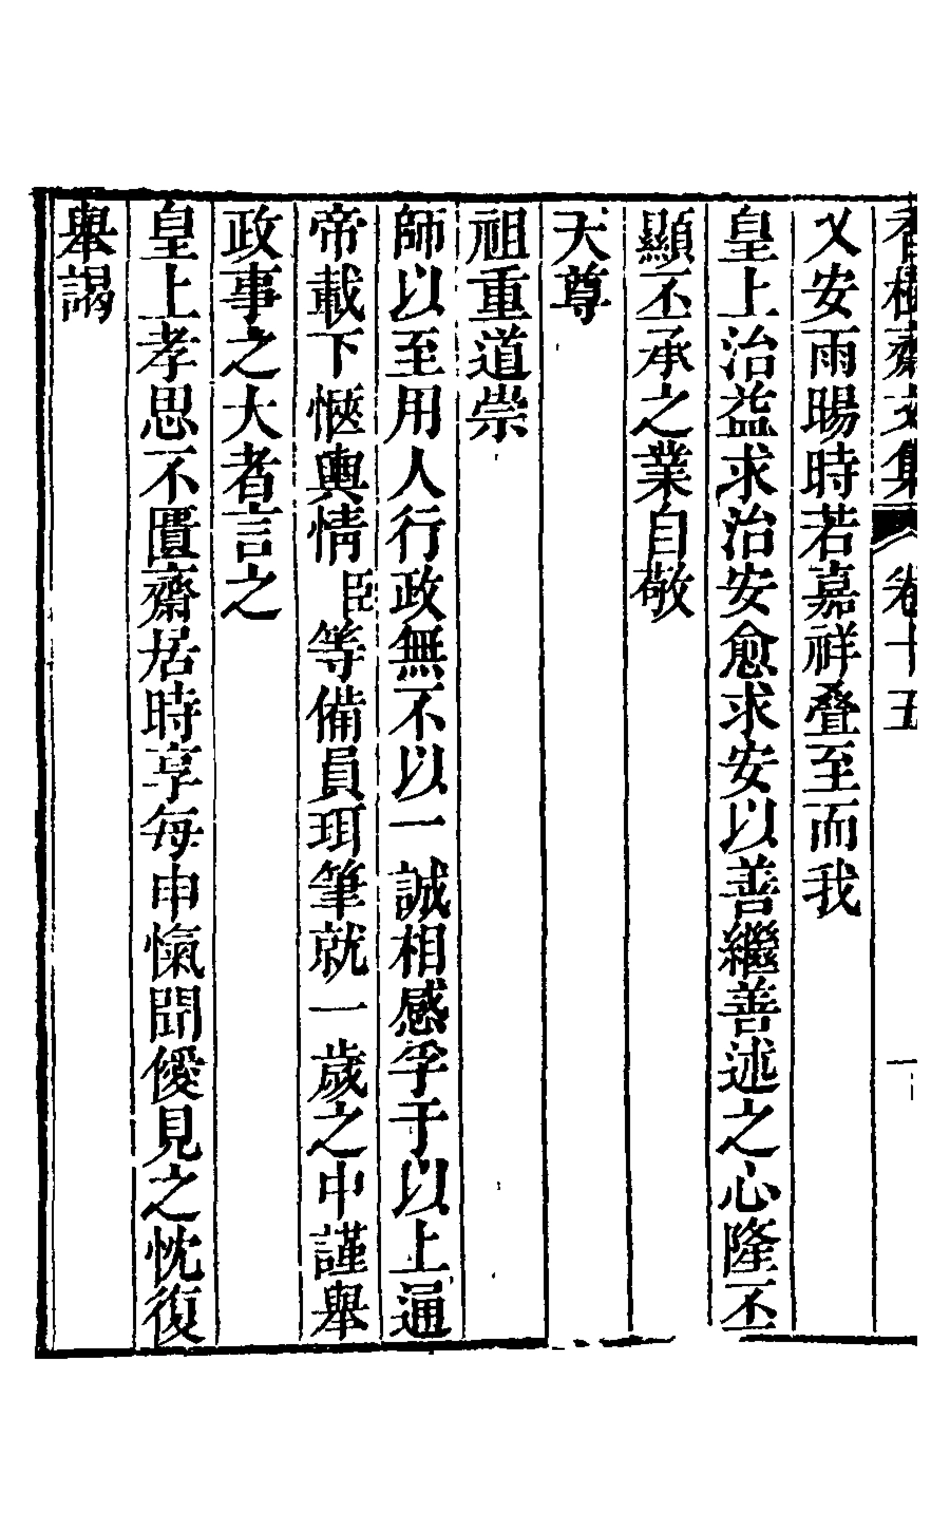 香樹齋文集 卷十五 一
乂安雨暘時若嘉祥叠至而我
皇上治益求治安愈求安以善繼善述之心隆丕
顯丕承之業自敬
天尊
祖重道崇
師以至用人行政無不以一誠相感孚于以上通
帝載下愜輿情臣等備員珥筆就一歲之中謹舉
政事之大者言之
皇上孝思不匱齋居時享每申愾聞僾見之忱復
舉謁